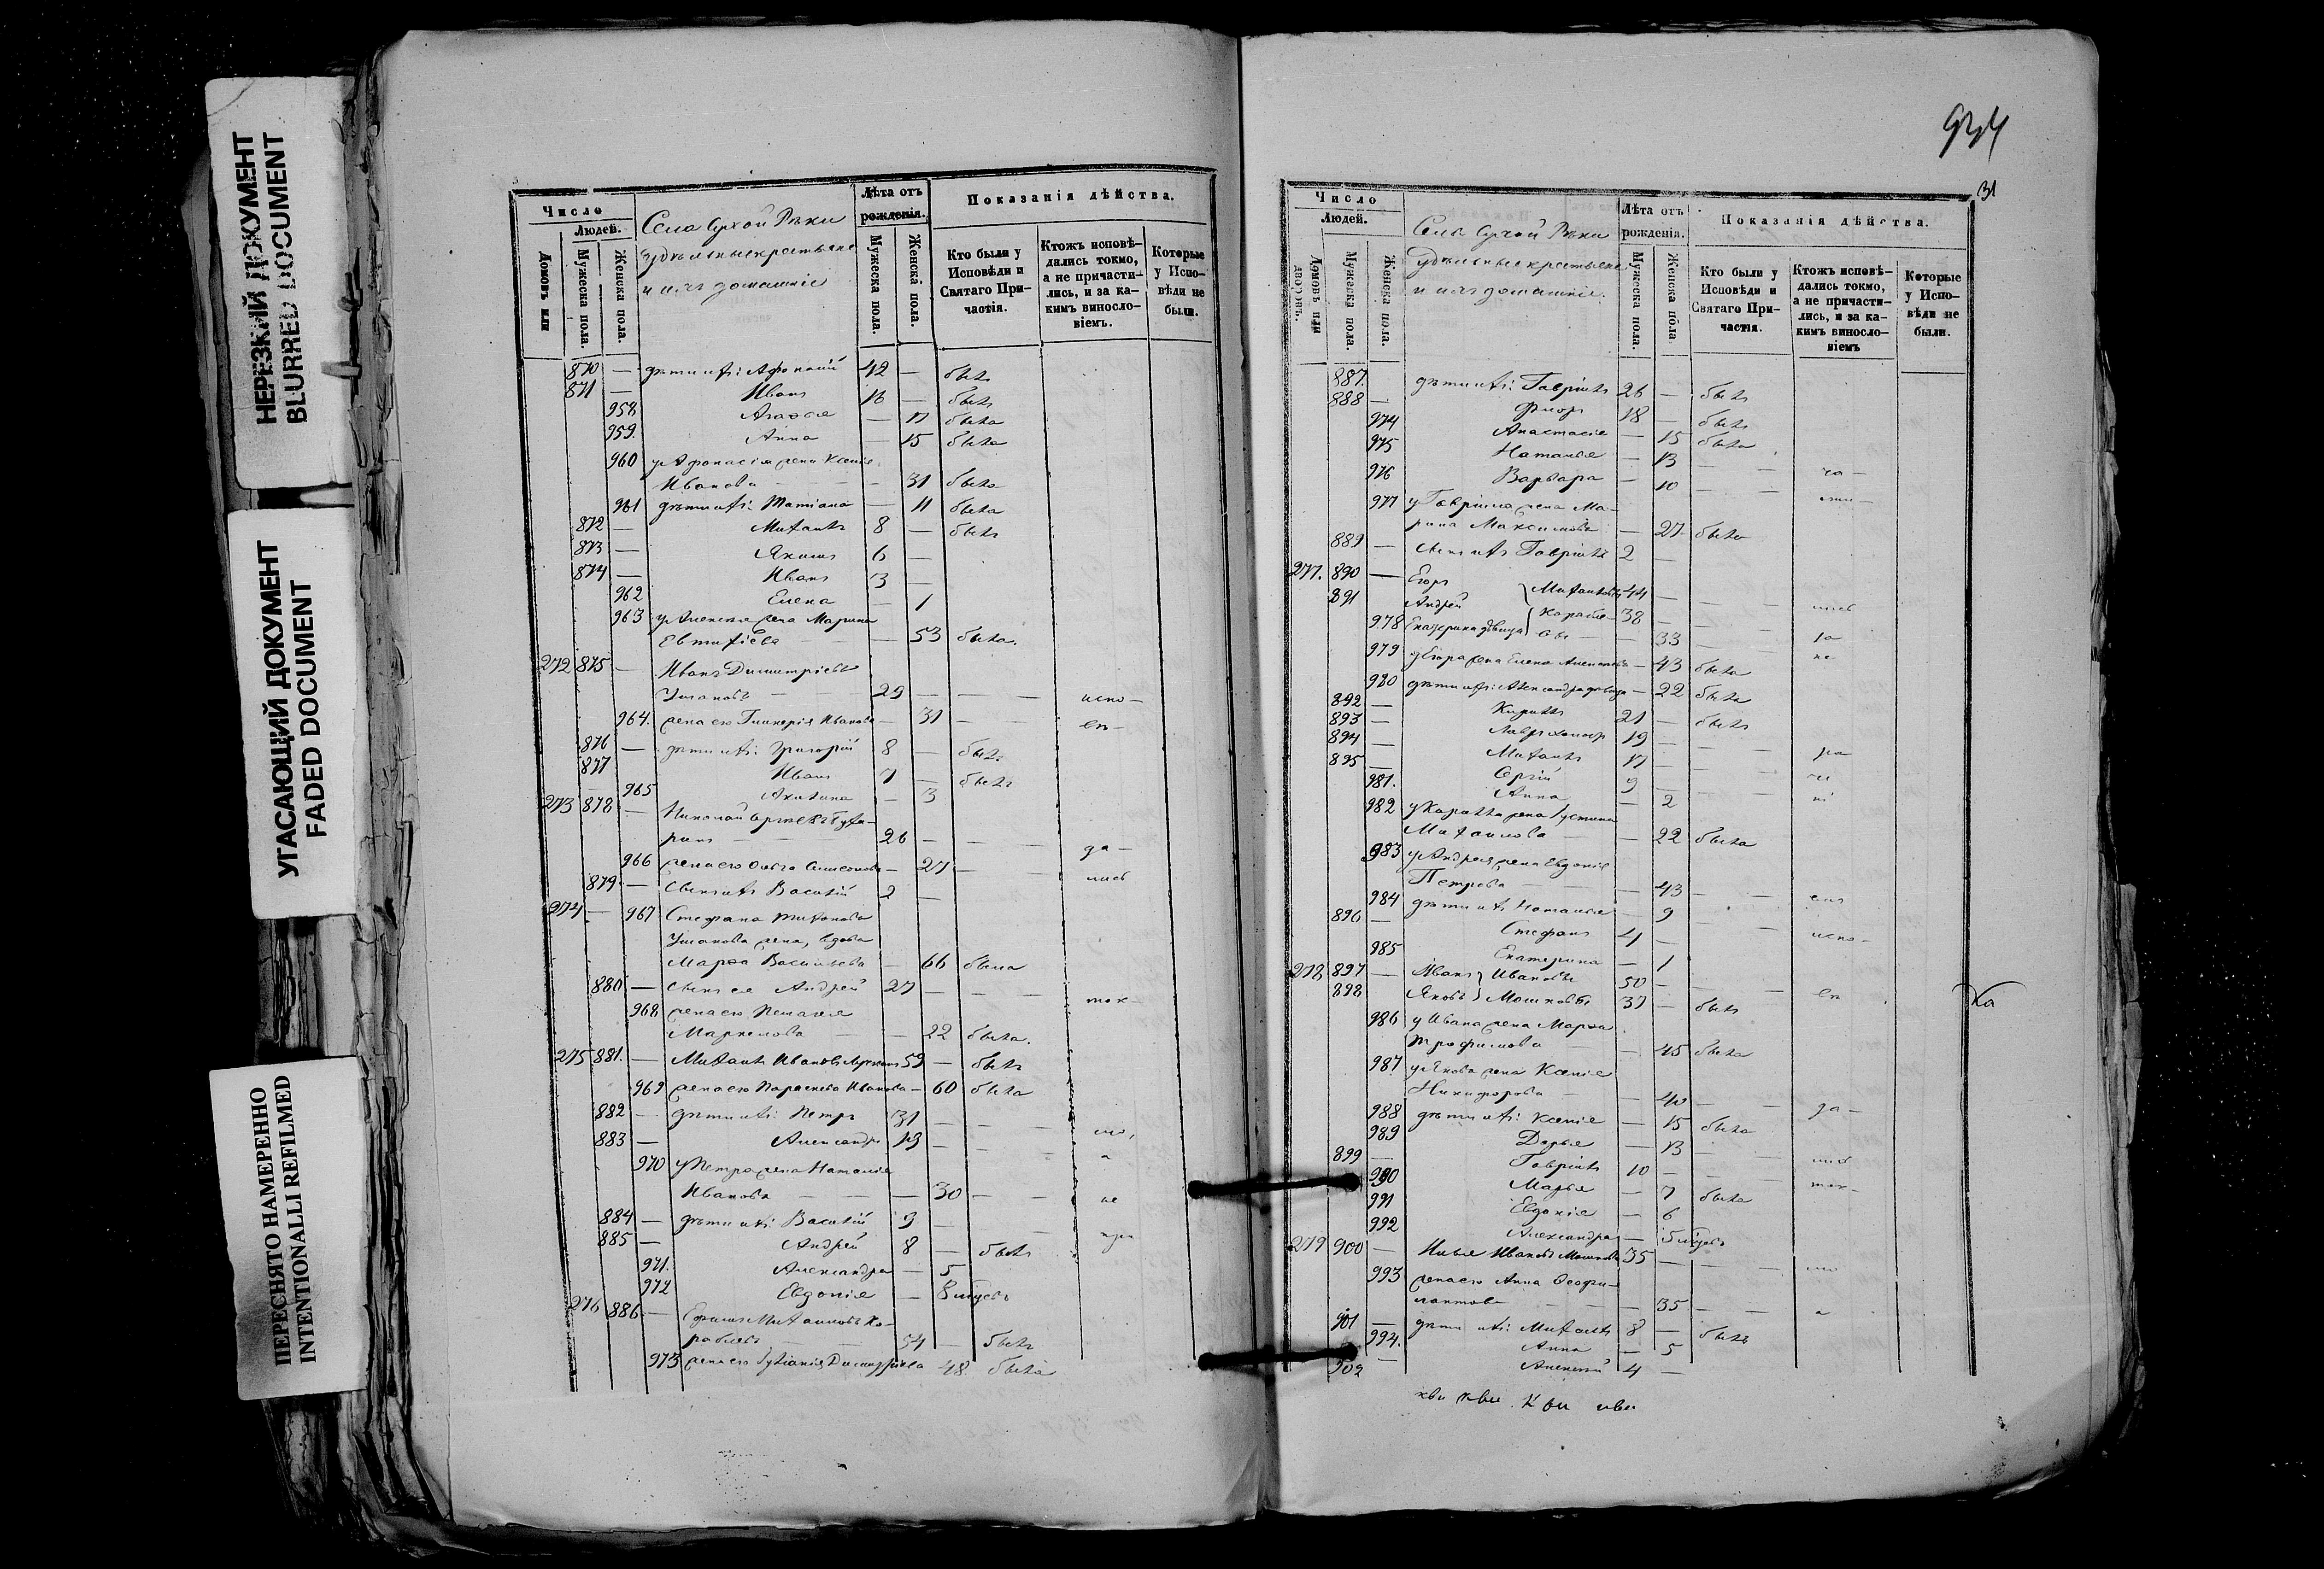 НЕРЕЗКИЙ ДОКУМЕНТ
BLURRED DOCUMENT
УГАСАЮЩИЙ ДОКУМЕНТ
FADED DOCUMENT
ПЕРЕСНЯТО НАМЕРЕННО
INTENTIONALLI REFILMED
Число
Людей.
Домовъ или
Мужеска пола.
Женска пола.
Села Сухой Рѣки
удѣльные крестьяне
и ихъ домашніе
Лѣта отъ рожденія.
Мужеска пола.
Женска пола.
Показанія дѣйства.
Кто были у Исповѣди и Святаго Причастія.
Ктожъ исповѣдались токмо, а не причастились, и за какимъ винословіемъ.
Которые у Исповѣди не были.
870 — дѣти ихъ: Афонасій 42 — былъ
871 Иванъ 18 — былъ
958 Агафья — 17 была
959. Анна — 15 была
960 у Афонасія жена Ксенія
Иванова — — 31 была
961 дѣти ихъ: Татіана — 11 была
872 — Михаилъ 8 — былъ
873 — Якимъ 6 —
874 — Иванъ 3 —
962 Елена — 1
963 у Алексѣя жена Марина
Евтихіева — 53 была.
272 875 — Иванъ Димитріевъ
Ушаковъ — 29 — — — испо-
964. жена его Гликерія Иванова — 31 — — вѣ-
876 — дѣти ихъ: Григорій 8 — былъ
877 Иванъ 7 — былъ
965 Акилина — 3
273 878 — Николай Сергѣевъ
26 — — — да-
966 жена его Ольга Симеонова — 27 — лись
879 — сынъ ихъ Василій 2 —
274 — 967 Стефана Тихонова
Ушакова жена, вдова
Марфа Васильева — 66 была
880 — сынъ ея Андрей 27 — — — ток-
968 жена его Пелагея
Маркелова — — 22 была.
275 881. — Михаилъ Ивановъ 59 — былъ
969 жена его Параскева Иванова — 60 была
882 — дѣти ихъ: Петръ 31 — — — мо,
883 — Александръ 19 — — — а
970 у Петра жена Наталія
Иванова — — — 30 — — не
884 — дѣти ихъ: Василій 9 — — при
885 — Андрей 8 — былъ
971. Александра — 5
972 Евдокія — 8 мѣсяцъ
276 886 — Ефимъ Михаиловъ Ко-
раблевъ — 54 — былъ
973 жена его Димитріева 48 была
934
31
Число
Людей.
Домовъ или дворовъ.
Мужеска пола.
Женска пола.
Села Сухой Рѣки
удѣльные крестьяне
и ихъ домашніе.
Лѣта отъ рожденія.
Мужеска пола.
Женска пола
Показанія дѣйства.
Кто были у Исповѣди и Святаго Причастія.
Ктожъ исповѣдались токмо, а не причастились, и за какимъ винословіемъ
Которые у Исповѣди не были.
887. дѣти ихъ: Гавріилъ 26 — былъ
888 — Флоръ 18 — былъ
974 Анастасія — 15 была
975 Наталья — 13 — — ча-
976 Варвара — 10 — — сти-
977 у Гавріила жена Ма-
рина Максимова — 27 была
889 — сынъ ихъ Гавріилъ 2 —
277. 890 — Егоръ Михаиловы 44 — — — лись
891 Андрей Корабле- 38 — — — за
978 Екатерина дѣвица вы — — 33 — — не
979 у Егора жена Елена Алексѣева — 43 была
980 дѣти ихъ: Александра дѣвица — 22 была
892 — Кирилъ 21 — былъ
893 — 19 — — ра-
894 — Михаилъ 17 — — че
895 — Сергій 9 — — ні
981. Анна — 2
982 у Кирилла жена Устинья
Михаилова — — 22 была
983 у Андрея жена Евдокія
Петрова — — — 43 — — емъ
984 дѣти ихъ Наталья — 9 — — испо-
896 — Стефанъ 4 —
985 Екатерина — 1
278 897 — Иванъ Ивановы 50 — — вѣ
898 Яковъ Мошковы 37 — былъ
986 у Ивана жена Марфа
Трофимова — — 45 была
987 у Якова жена Ксенія
Никифорова — — 40 — — да-
988 дѣти ихъ: Ксенія — 15 была
989 Дарья — 13 — — лись
899 — Гавріилъ 10 — — ток-
990 Марья — 7 была
991 Евдокія — 6
992 Александра — 5 мѣсяцъ
279 900 — Илья Ивановъ Мошковъ 35 — — — мо
993 жена его Анна Ѳеофи-
лактова — — — 35 — — а
901 — дѣти ихъ: Михаилъ 8 — былъ
994. Анна — 5
902 — Алексѣй 4 —